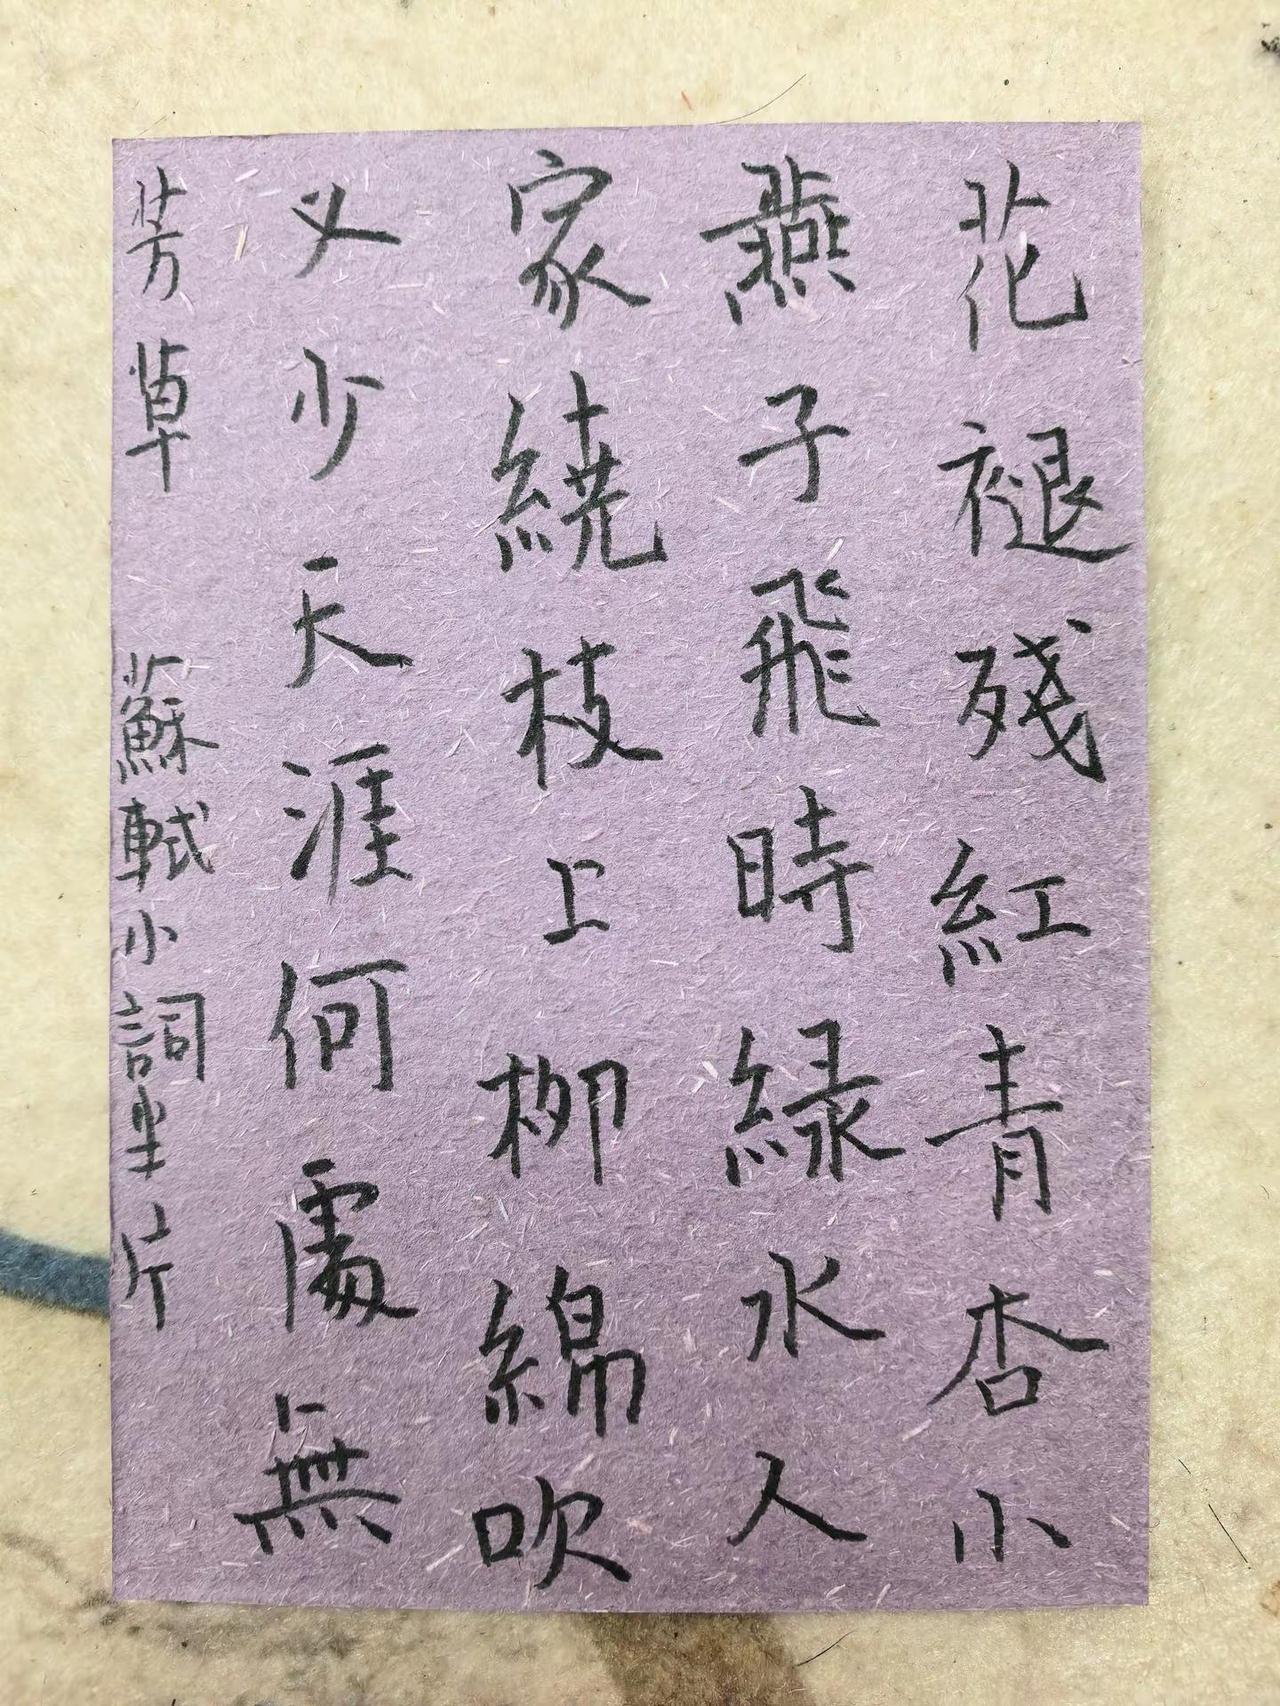 花褪殘紅青杏小
燕子飛時緑水人
家繞枝上柳綿吹
又少天涯何處無
芳草 蘇軾小詞半片